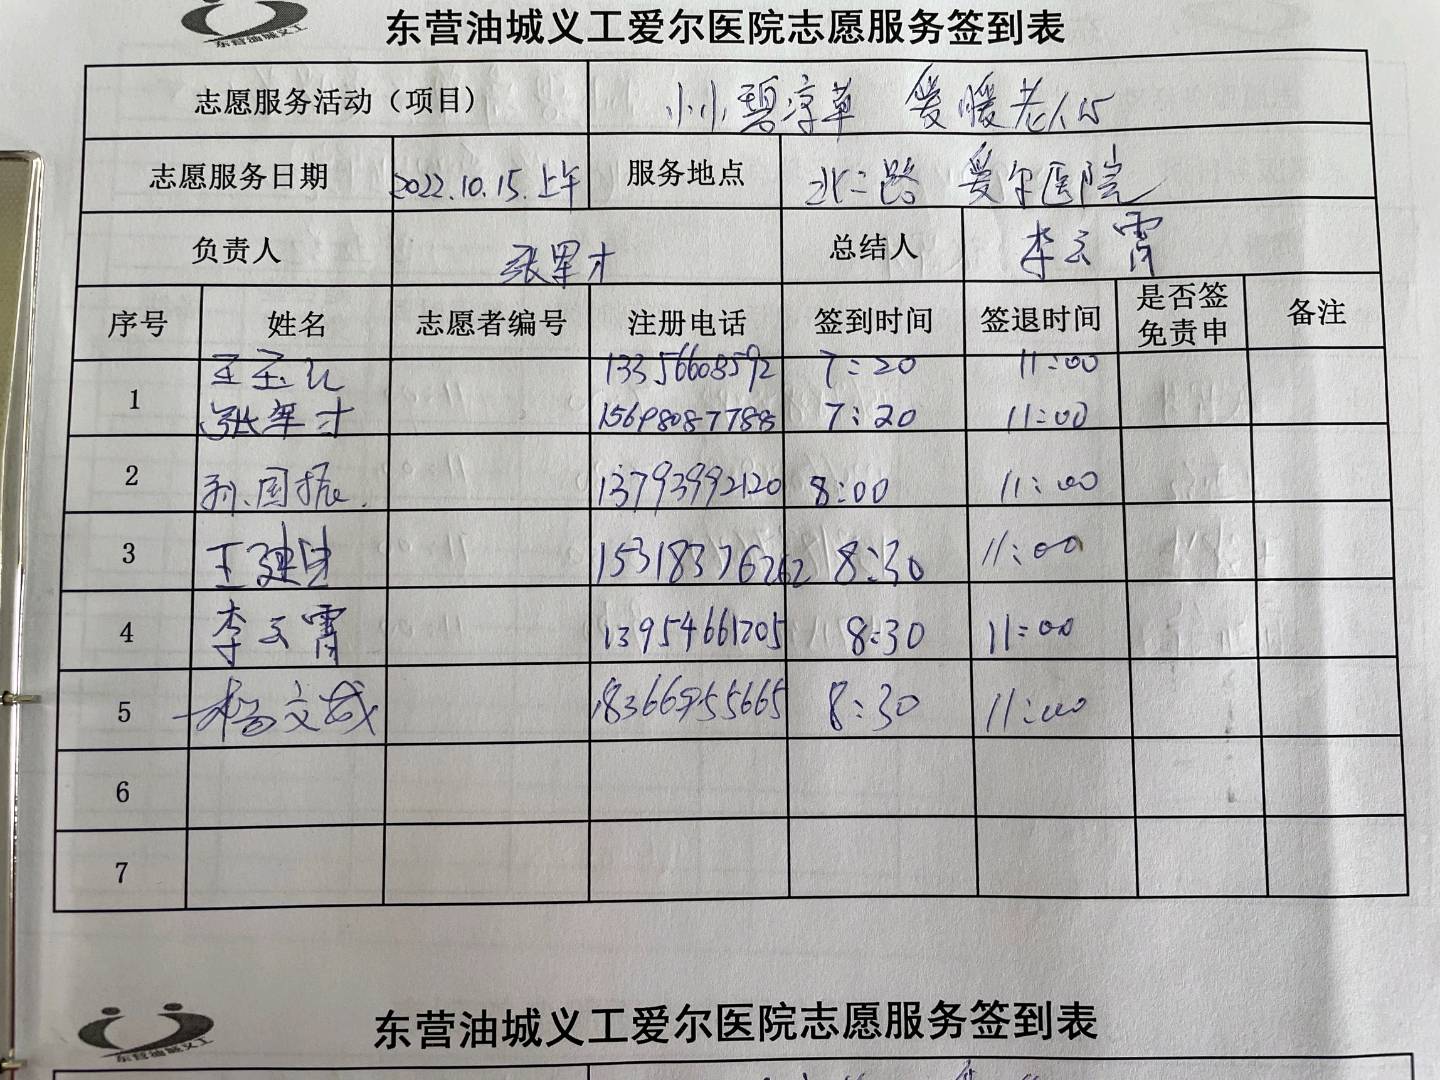 东营油城义工
东营油城义工爱尔医院志愿服务签到表
志愿服务活动（项目） 小小碧淳草 爱暖老人心
志愿服务日期 2022.10.15.上午 服务地点 北二路 爱尔医院
负责人 张军才 总结人 李云霄
序号 姓名 志愿者编号 注册电话 签到时间 签退时间 是否签免责申 备注
1 王玉 13356608592 7:20 11:00
张军才 15698087788 7:20 11:00
2 孙国振 13793992120 8:00 11:00
3 王建 15318376262 8:30 11:00
4 李云霄 13954661205 8:30 11:00
5 杨文城 18366955665 8:30 11:00
6
7
东营油城义工
东营油城义工爱尔医院志愿服务签到表